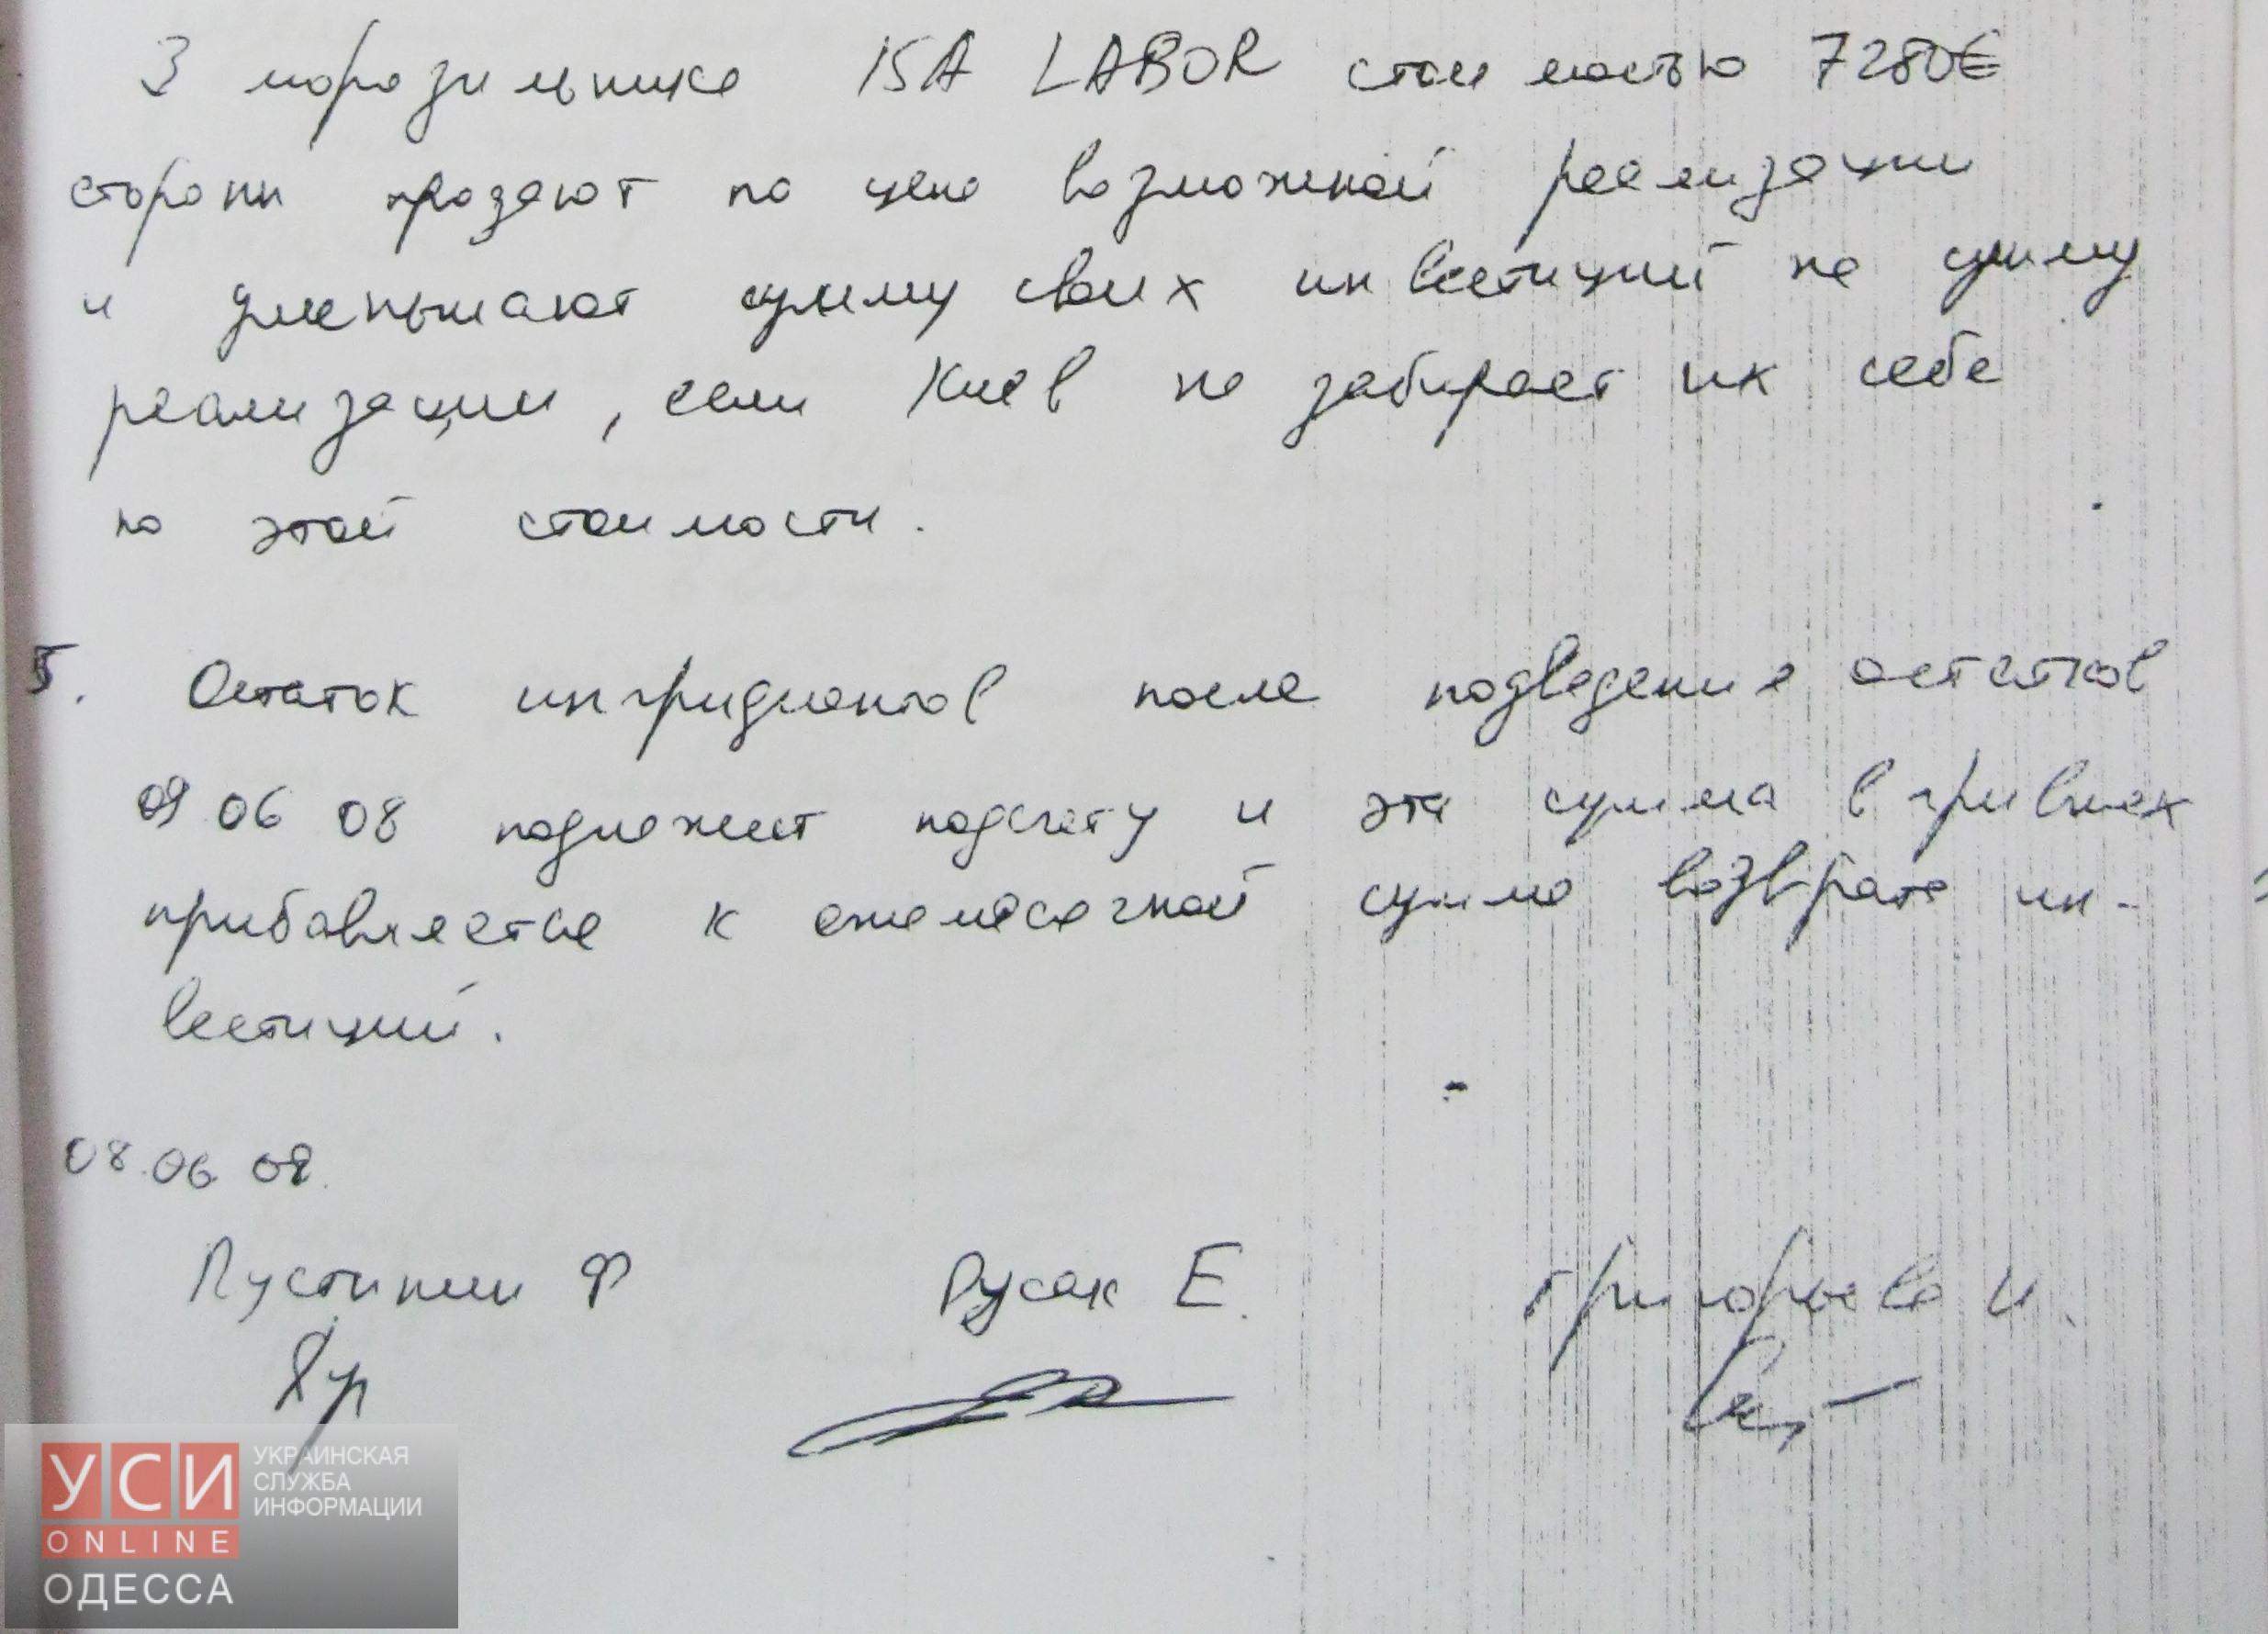 3 морозильника ISA LABOR стоимостью 7280€
стороны продают по цене возможной реализации
и уменьшают сумму своих инвестиций на сумму
реализации, если Киев не забирает их себе
по этой стоимости.
5. Остаток ингридиентов после подведения остатков
09 06 08 подлежит подсчету и эта сумма в гривнах
прибавляется к ежемесячной сумме возврата ин-
вестиций.
08.06 08.
Пустинин Ф Русак Е. Григорьева И.
УСИ УКРАИНСКАЯ
СЛУЖБА
ИНФОРМАЦИИ
ONLINE
ОДЕССА